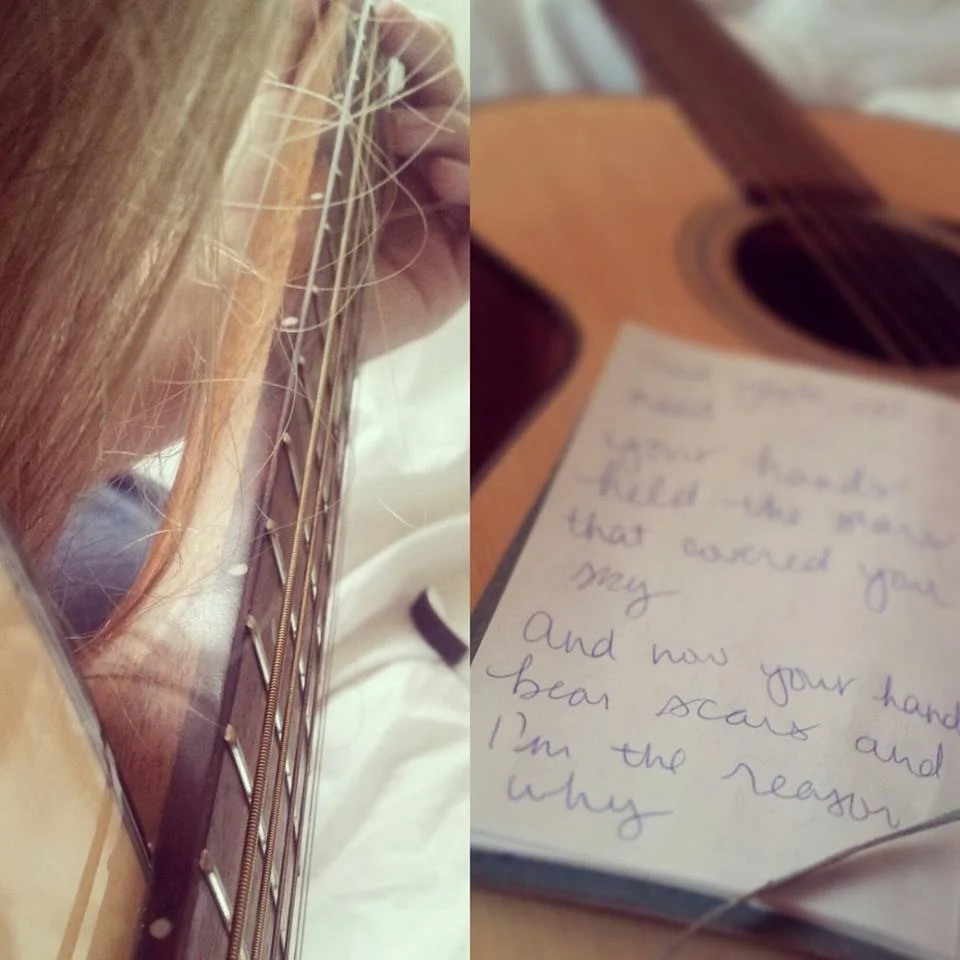 your hands
held the stars
that covered your
sky
And now your hand
bear scars and
I'm the reason
why